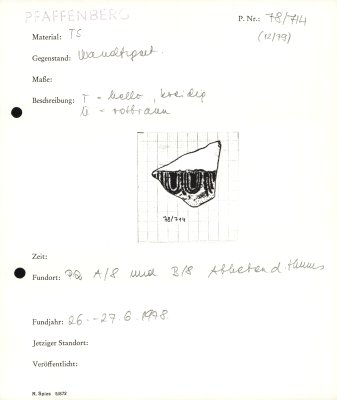 PFAFFENBERG
P. Nr.: 78/714
(12/79)
Material: TS
Gegenstand: Wandfrgmt.
Maße:
Beschreibung: T - hell, kreidig
Ü - rotbraun
78/714
Zeit:
Fundort: PQ A/8 und B/8
Fundjahr: 26. - 27. 6. 1978
Jetziger Standort:
Veröffentlicht:
R. Spies 5/872